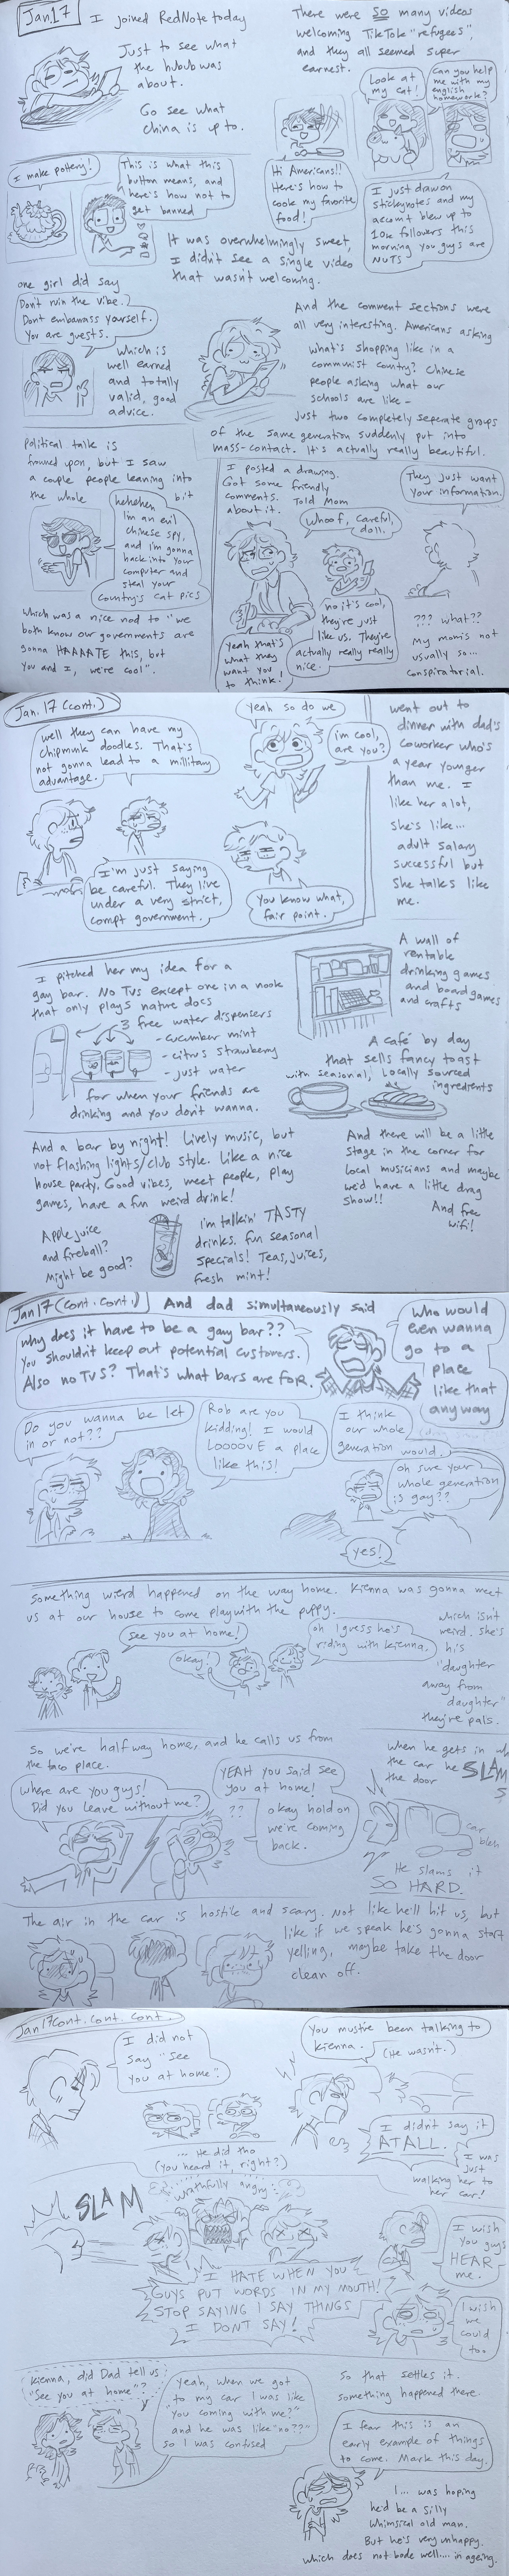 Jan.17
I joined RedNote today
Just to see what
the hubub was
about.
Go see what
China is up to.
There were SO many videos
welcoming TikTok "refugees",
and they all seemed super
earnest.
Look at
my cat!
Can you help
me with my
english
homework?
Hi Americans!!
Here's how to
cook my favorite
food!
I just draw on
stickynotes and my
account blew up to
10k followers this
morning you guys are
NUTS
I make pottery!
This is what this
button means, and
here's how not to
get banned
It was overwhelmingly sweet,
I didn't see a single video
that wasn't welcoming.
one girl did say
Don't ruin the vibe.
Dont embarrass yourself.
You are guests.
Which is
well earned
and totally
valid, good
advice.
And the comment sections were
all very interesting. Americans asking
what's shopping like in a
commuist country? Chinese
people asking what our
schools are like -
Just two completely seperate groups
of the same generation suddenly put into
mass-contact. It's actually really beautiful.
political talk is
frowned upon, but I saw
a couple people leaning into
the whole
bit
hehehen
I'm an evil
chinese spy,
and i'm gonna
hack into your
computer and
steal your
country's cat pics
which was a nice nod to "we
both know our governments are
gonna HAAAATE this, but
you and I, we're cool".
I posted a drawing.
Got some friendly
comments. Told Mom
about it.
Whoof, careful,
doll.
They just want
your information.
no it's cool,
they're just
like us. They're
actually really really
nice.
Yeah that's
what they
want you
to think!
??? what??
My mom's not
usually so...
conspiratorial.
Jan. 17 (cont.)
well they can have my
chipmunk doodles. That's
not gonna lead to a millitary
advantage.
Yeah so do we
i'm cool,
are you?
I'm just saying
be careful. They live
under a very strict,
corrupt government.
You know what,
fair point.
went out to
dinner with dad's
coworker who's
a year younger
than me. I
like her a lot,
she's like...
adult salary
successful but
she talks like
me.
I pitched her my idea for a
gay bar. No TVs except one in a nook
that only plays nature docs
3 free water dispensers
- cucumber mint
- citrus strawberry
- just water
for when your friends are
drinking and you don't wanna.
A wall of
rentable
drinking games
and board games
and crafts
A café by day
that sells fancy toast
with seasonal, locally sourced
ingredients
And a bar by night! Lively music, but
not flashing lights/club style. Like a nice
house party. Good vibes, meet people, play
games, have a fun weird drink!
Apple juice
and fireball?
Might be good?
i'm talkin' TASTY
drinks. fun seasonal
specials! Teas, juices,
fresh mint!
And there will be a little
stage in the corner for
local musicians and maybe
we'd have a little drag
show!!
And free
wifi!
Jan17 (cont. cont.)
And dad simultaneously said
why does it have to be a gay bar??
You shouldn't keep out potential customers.
Also no TVs? That's what bars are FOR.
Who would
even wanna
go to a
place
like that
anyway
Do you wanna be let
in or not??
Rob are you
kidding! I would
LOOOOVE a place
like this!
I think
our whole
generation would.
oh sure your
whole generation
is gay??
yes!
Something wierd happened on the way home. Kienna was gonna meet
us at our house to come play with the puppy.
see you at home!
okay!
oh I guess he's
riding with kienna.
which isnt
weird. she's
his
"daughter
away from
daughter"
they're pals.
So we're halfway home, and he calls us from
the taco place.
where are you guys!
Did you leave without me?
YEAH you said see
you at home!
??
okay hold on
we're coming
back.
When he gets in
the car he SLAM
the door
car
bleh
He slams it
SO HARD.
The air in the car is hostile and scary. Not like he'll hit us, but
like if we speak he's gonna start
yelling, maybe take the door
clean off.
Jan17 cont. cont. cont.
I did not
say "see
you at home".
You must've been talking to
Kienna. (He wasn't.)
... He did tho
(You heard it, right?)
I didn't say it
AT ALL.
I was
just
walking her to
her car!
SLAM
wrathfully angry
I HATE WHEN YOU
GUYS PUT WORDS IN MY MOUTH!
STOP SAYING I SAY THINGS
I DONT SAY!
I wish
you guys
HEAR
me.
I wish
we
could
too.
Kienna, did Dad tell us
"see you at home"?
Yeah, when we got
to my car I was like
"You coming with me?"
and he was like "no??"
so I was confused
So that settles it.
something happened there.
I fear this is an
early example of things
to come. Mark this day.
I... was hoping
he'd be a silly
whimsical old man.
But he's very unhappy.
which does not bode well.... in ageing.